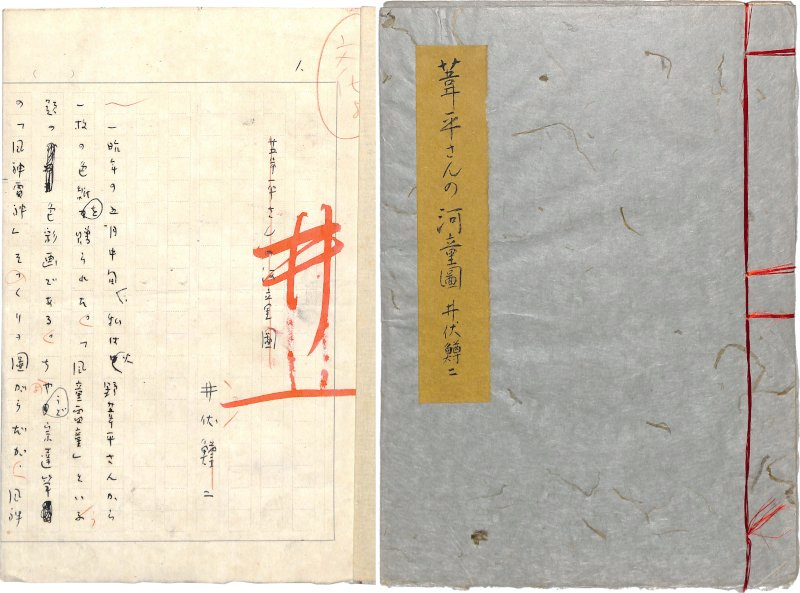 葦平さんの河童圖 井伏鱒二
1.
井
葦平さんの河童圖
井伏鱒二
一昨年の五月中旬、私は火野葦平さんから
一枚の色紙を贈られた。「風童雷童」といふ
題の色彩画である。ちやうど宗達筆
の「風神雷神」そつくりの圖がらだが、風神